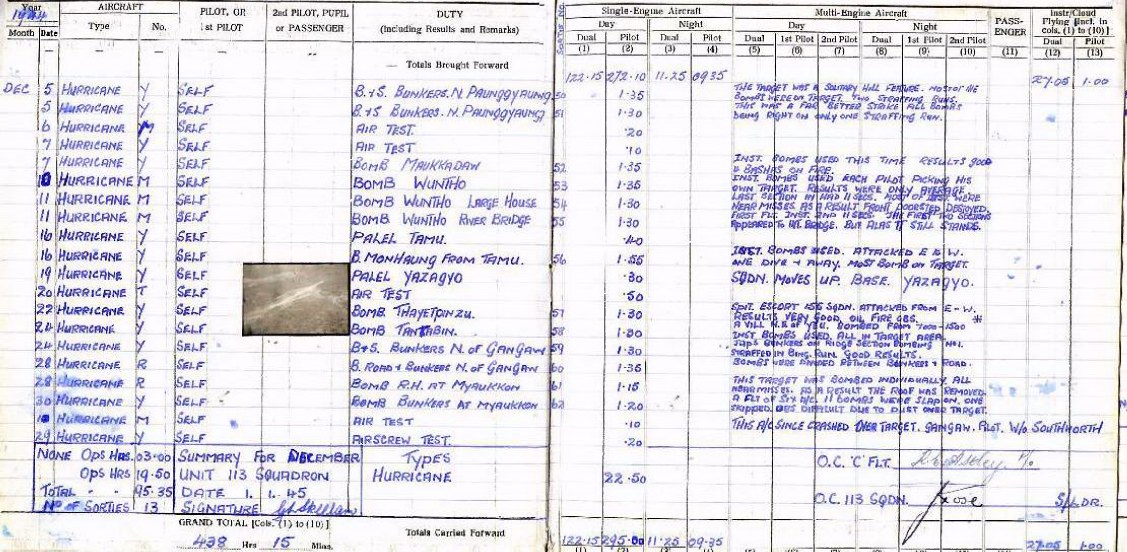 Year AIRCRAFT PILOT, OR 2ND PILOT, PUPIL DUTY Single-Engine Aircraft Multi-Engine Aircraft PASS- Instr/Cloud
1944 1ST PILOT OR PASSENGER (Including Results and Remarks) Day Night Day Night ENGER Flying [Incl. in
Month Date Type No. Dual Pilot Dual Pilot Dual 1st Pilot 2nd Pilot Dual 1st Pilot 2nd Pilot cols. (1) to (10)]
(1) (2) (3) (4) (5) (6) (7) (8) (9) (10) (11) Dual Pilot
(12) (13)
— — — — — Totals Brought Forward
122·15 272·10 11·25 09·35 27·05 1·00
DEC 5 HURRICANE Y SELF B.+S. BUNKERS. N. PAUNGGYAUNG 50 1·35 THE TARGET WAS A SOLITARY HILL FEATURE. MOST OF THE
BOMBS WERE ON TARGET. TWO STRAFFING RUNS.
5 HURRICANE Y SELF B.+S. BUNKERS. N. PAUNGGYAUNG 51 1·30 THIS WAS A FAR BETTER STRIKE ALL BOMBS
BEING RIGHT ON ONLY ONE STRAFFING RUN.
6 HURRICANE M SELF AIR TEST. ·20
7 HURRICANE Y SELF AIR TEST ·10
7 HURRICANE Y SELF BOMB MAUKKADAW 52 1·35 INST. BOMBS USED THIS TIME RESULTS GOOD
& BASHAS ON FIRE.
10 HURRICANE M SELF BOMB WUNTHO 53 1·35 INST. BOMBS USED EACH PILOT PICKING HIS
OWN TARGET. RESULTS WERE ONLY AVERAGE
11 HURRICANE M SELF BOMB WUNTHO LARGE HOUSE 54 1·30 LAST SECTION IN HAD 11 SECS. MOST OF WERE
NEAR MISSES AS A RESULT FRONT DOORSTEP DESTROYED.
11 HURRICANE M SELF BOMB WUNTHO RIVER BRIDGE 55 1·30 FIRST FLT. INST. 2ND 11 SECS. THE FIRST TWO SECTIONS
APPEARED TO HIT BRIDGE. BUT ALAS IT STILL STANDS.
16 HURRICANE Y SELF PALEL TAMU. ·40
16 HURRICANE Y SELF B. MONHAUNG FROM TAMU. 56 1·55 INST. BOMBS USED. ATTACKED E to W.
ONE DIVE & AWAY. MOST BOMB ON TARGET.
19 HURRICANE Y SELF PALEL YAZAGYO ·30 SQDN. MOVES UP. BASE. YAZAGYO.
20 HURRICANE T SELF AIR TEST ·50
22 HURRICANE Y SELF BOMB. THAYETPINZU. 57 1·30 SPIT. ESCORT 155 SQDN. ATTACKED FROM E-W.
RESULTS VERY GOOD, OIL FIRE OBS.
24 HURRICANE Y SELF BOMB TANTABIN. 58 1·30 A VILL N.E of YEU. BOMBED FROM 7000-1500
INST BOMBS USED. ALL IN TARGET AREA
24 HURRICANE Y SELF B+S. BUNKERS N. OF GANGAW 59 1·30 JAPS BUNKERS ON RIDGE SECTION BOMBING No1.
STRAFFED IN BMG. RUN. GOOD RESULTS.
28 HURRICANE R SELF B. ROAD + BUNKERS N. OF GANGAW 60 1·35 BOMBS WERE DIVIDED BETWEEN BUNKERS & ROAD.
28 HURRICANE R SELF BOMB R.H. AT MYAUKKON 61 1·15 THIS TARGET WAS BOMBED INDIVIDUALLY. ALL
NEAR MISSES. AS A RESULT THE ROOF WAS REMOVED.
30 HURRICANE Y SELF BOMB BUNKERS AT MYAUKKON 62 1·20 A FLT OF SIX A/C. 11 BOMBS WERE SLAP ON. ONE
SKIPPED. OBS DIFFICULT DUE TO DUST OVER TARGET.
HURRICANE M SELF AIR TEST ·10 THIS A/C SINCE CRASHED OVER TARGET. GANGAW. PLOT. W/O SOUTHWORTH
29 HURRICANE Y SELF AIRSCREW TEST. ·20
NONE OPS HRS. 03·00 SUMMARY FOR DECEMBER TYPES O.C. 'C' FLT.
OPS HRS 19·50 UNIT 113 SQUADRON HURRICANE 22·50
TOTAL - - 95·35 DATE 1. 1. 45 O.C. 113 SQDN. Rose S/LDR.
No OF SORTIES 13 SIGNATURE
GRAND TOTAL [Cols. (1) to (10)]
438 Hrs 15 Mins.
Totals Carried Forward 122·15 295·00 11·25 09·35 27·05 1·00